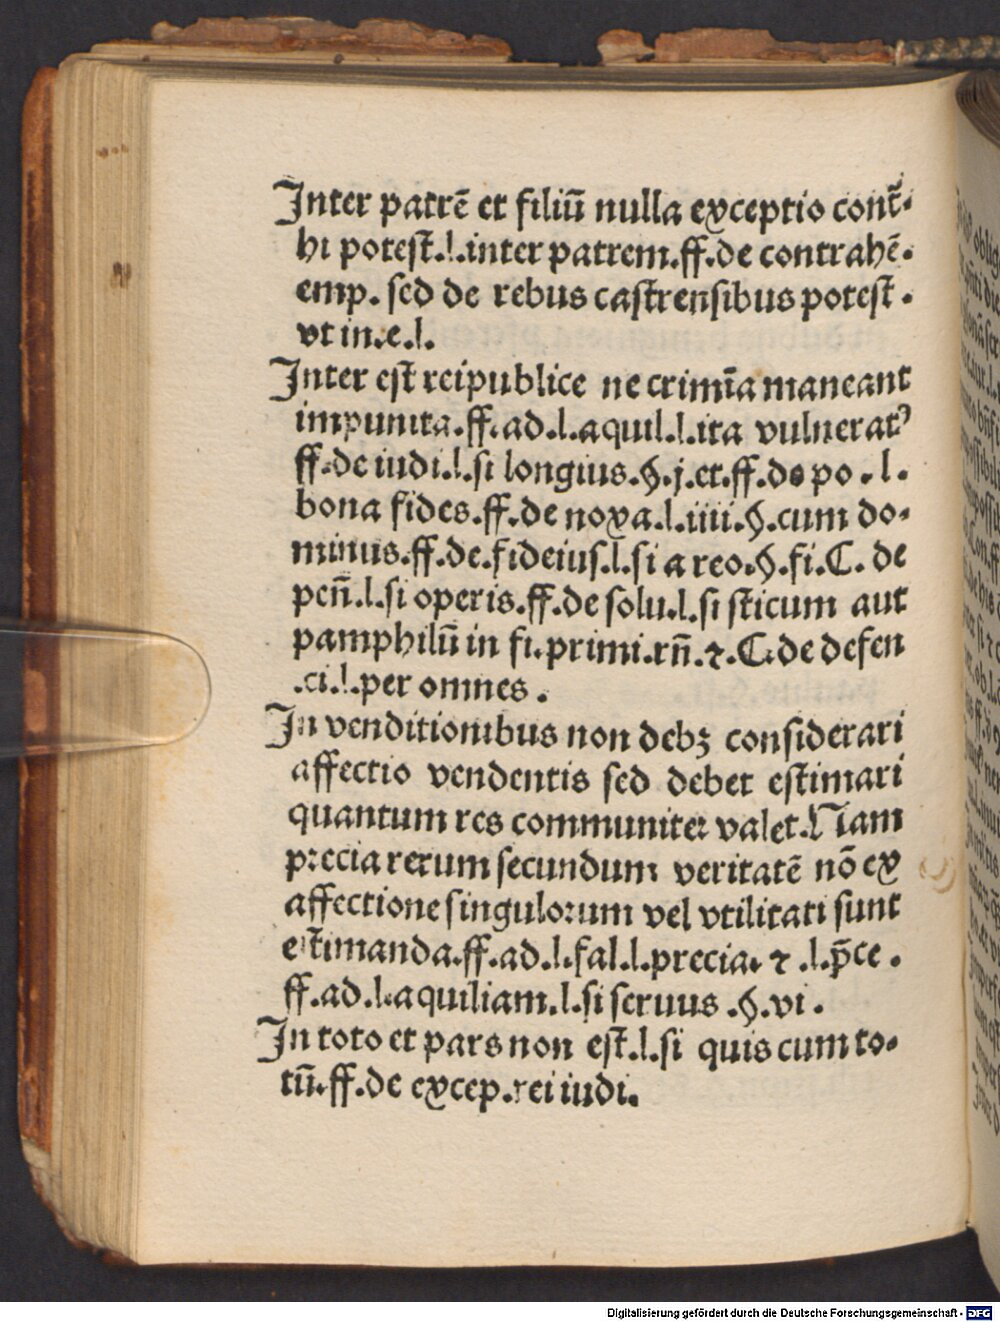 Inter patrē et filiū nulla exceptio cont̄·
hi potest.l.inter patrem.ff.de contrahē.
emp. sed de rebus castrensibus potest.
vt in.e.l.
Inter est reipublice ne crimīa maneant
impunita.ff.ad.l.aquil.l.ita vulneratꝰ
ff.de iudi.l.si longius.§.j.et.ff.de po.l.
bona fides.ff.de noxa.l.iiii.§.cum do-
minus.ff.de.fideius.l.si a reo.§.fi.C. de
pen̄.l.si operis.ff.de solu.l.si sticum aut
pamphilū in fi.primi.rn̄.⁊.C.de defen
.ci.l.per omnes.
In venditionibus non debꝫ considerari
affectio vendentis sed debet estimari
quantum res communiter valet.Nam
precia rerum secundum veritatē nō ex
affectione singulorum vel vtilitati sunt
estimanda.ff.ad.l.fal.l.precia.⁊.l.p̄ce.
ff.ad.l.aquiliam.l.si seruus.§.vi.
In toto et pars non est.l.si quis cum to-
tū.ff.de excep.rei iudi.
Digitalisierung gefördert durch die Deutsche Forschungsgemeinschaft - DFG